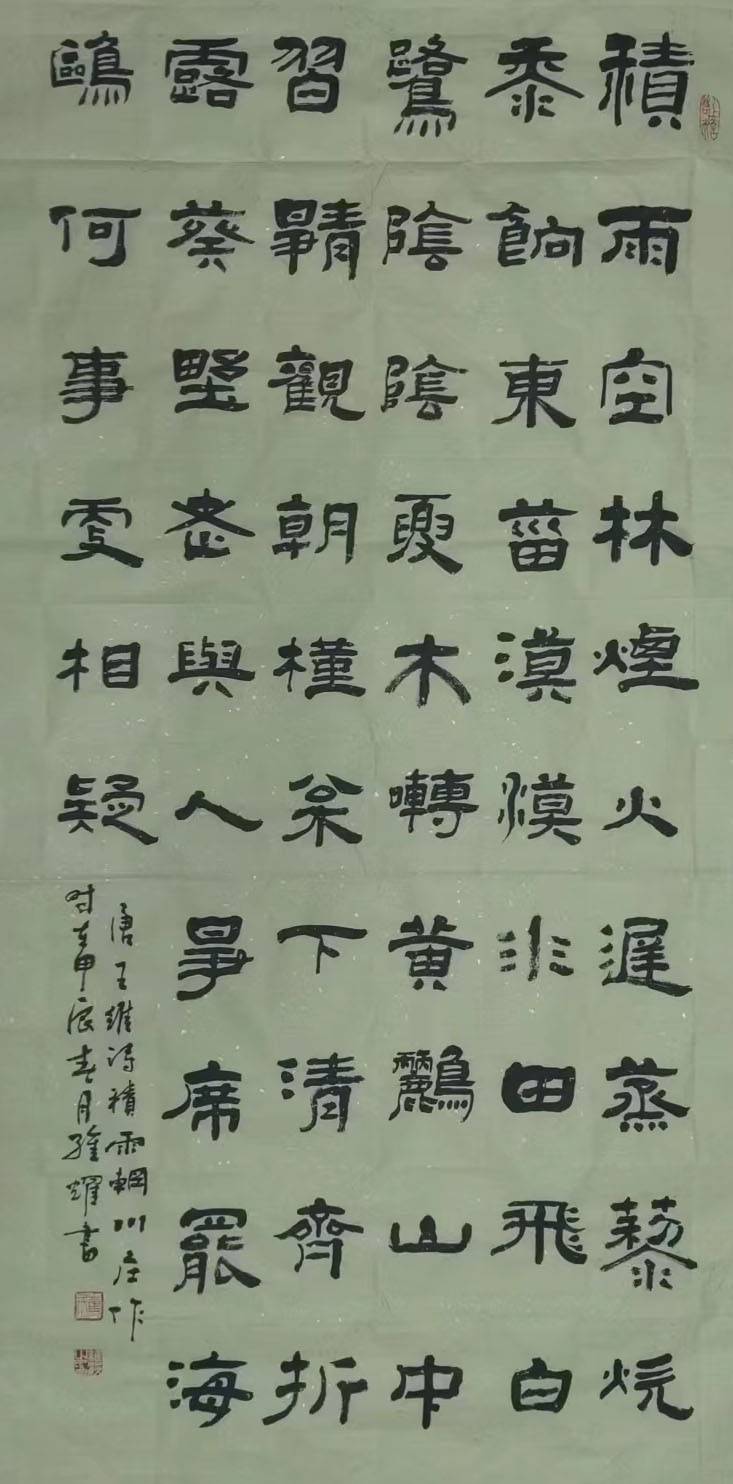 積雨空林煙火遲蒸藜炊
黍餉東菑漠漠水田飛白
鷺陰陰夏木囀黃鸝山中
習靜觀朝槿枀下清齋折
露葵野老與人爭席罷海
鷗何事更相疑
唐王維詩積雨輞川庄作
时在甲辰春月耀書